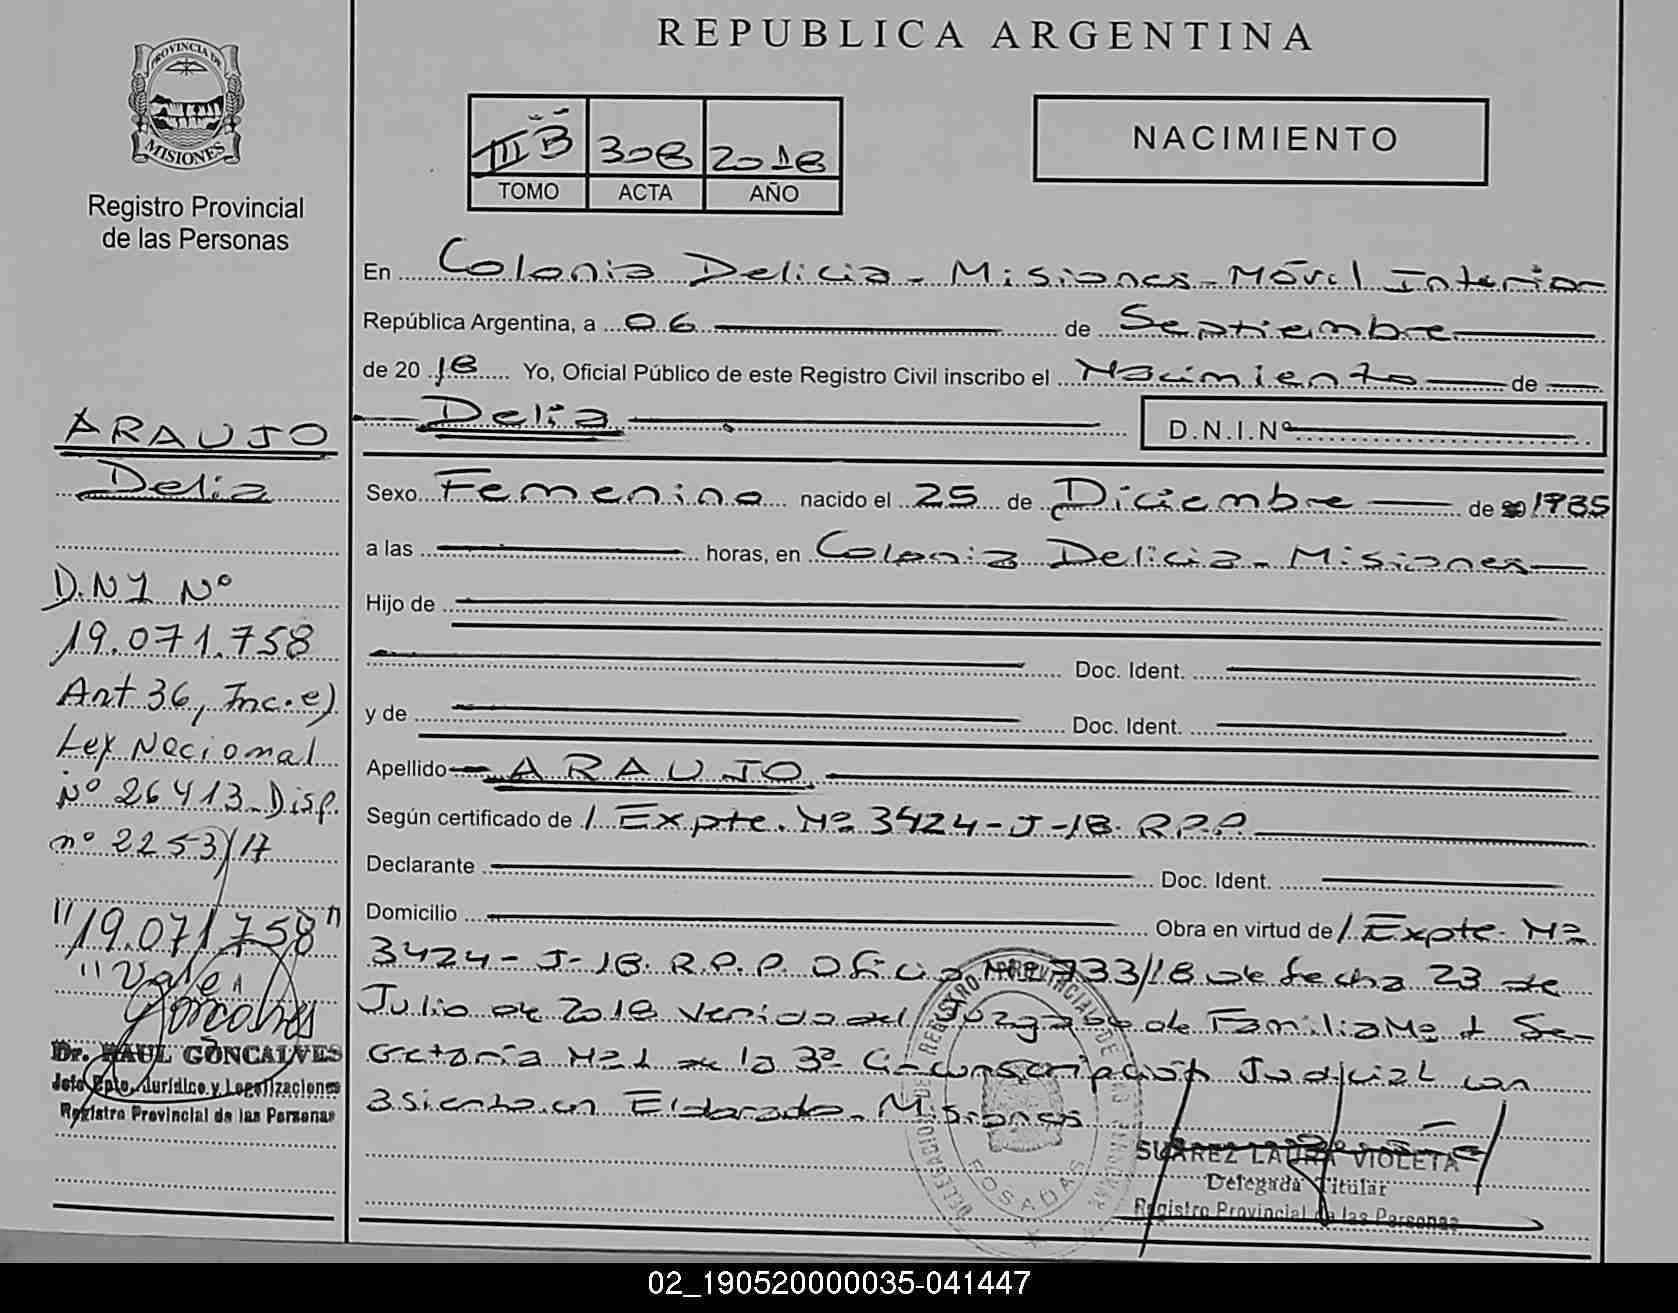 REPUBLICA ARGENTINA
PROVINCIA DE
MISIONES
Registro Provincial
de las Personas
III B 308 2018
TOMO ACTA AÑO
NACIMIENTO
En Colonia Delicia - Misiones - Móvil Interior
República Argentina, a 06 de Septiembre
de 2018 Yo, Oficial Público de este Registro Civil inscribo el Nacimiento de
Delia D.N.I.Nº
Sexo Femenino nacido el 25 de Diciembre de 1985
a las horas, en Colonia Delicia - Misiones
Hijo de
Doc. Ident.
y de Doc. Ident.
Apellido ARAUJO
Según certificado de / Expte. Nº 3424-J-18. R.P.P
Declarante Doc. Ident.
Domicilio Obra en virtud de / Expte. Nº
3424-J-18. R.P.P. Oficio Nº 733/18 de fecha 23 de
Julio de 2018 venido del Juzgado de Familia Nº 1 Se-
cretaría Nº 1 de la 3º Circunscripción Judicial con
asiento en Eldorado - Misiones
ARAUJO
Delia
D.N.I Nº
19.071.758
Art 36, Inc. e)
Ley Nacional
Nº 26413 - Disp.
nº 2253/17
"19.071.758"
"Vale"
Dr. RAUL GONCALVES
Jefe Dpto. Jurídico y Legalizaciones
Registro Provincial de las Personas
POSADAS
SUAREZ LAURA VIOLETA
Delegada Titular
Registro Provincial de las Personas
02_190520000035-041447